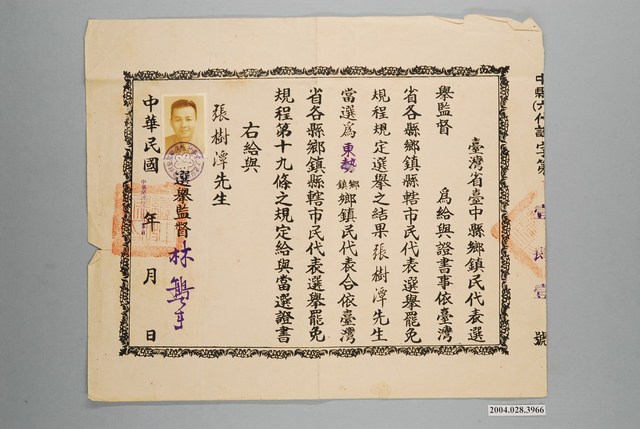 中縣(六)代證字第壹肆壹號
臺灣省臺中縣鄉鎮民代表選
舉監督　為給與證書事依臺灣
省各縣鄉鎮縣轄市民代表選舉罷免
規程規定選舉之結果張樹潭先生
當選為東勢鄉鎮鄉鎮民代表合依臺灣
省各縣鄉鎮縣轄市民代表選舉罷免
規程第十九條之規定給與當選證書
右給與
張樹潭先生
選舉監督林鶴年
中華民國 年 月 日
2004.028.3966